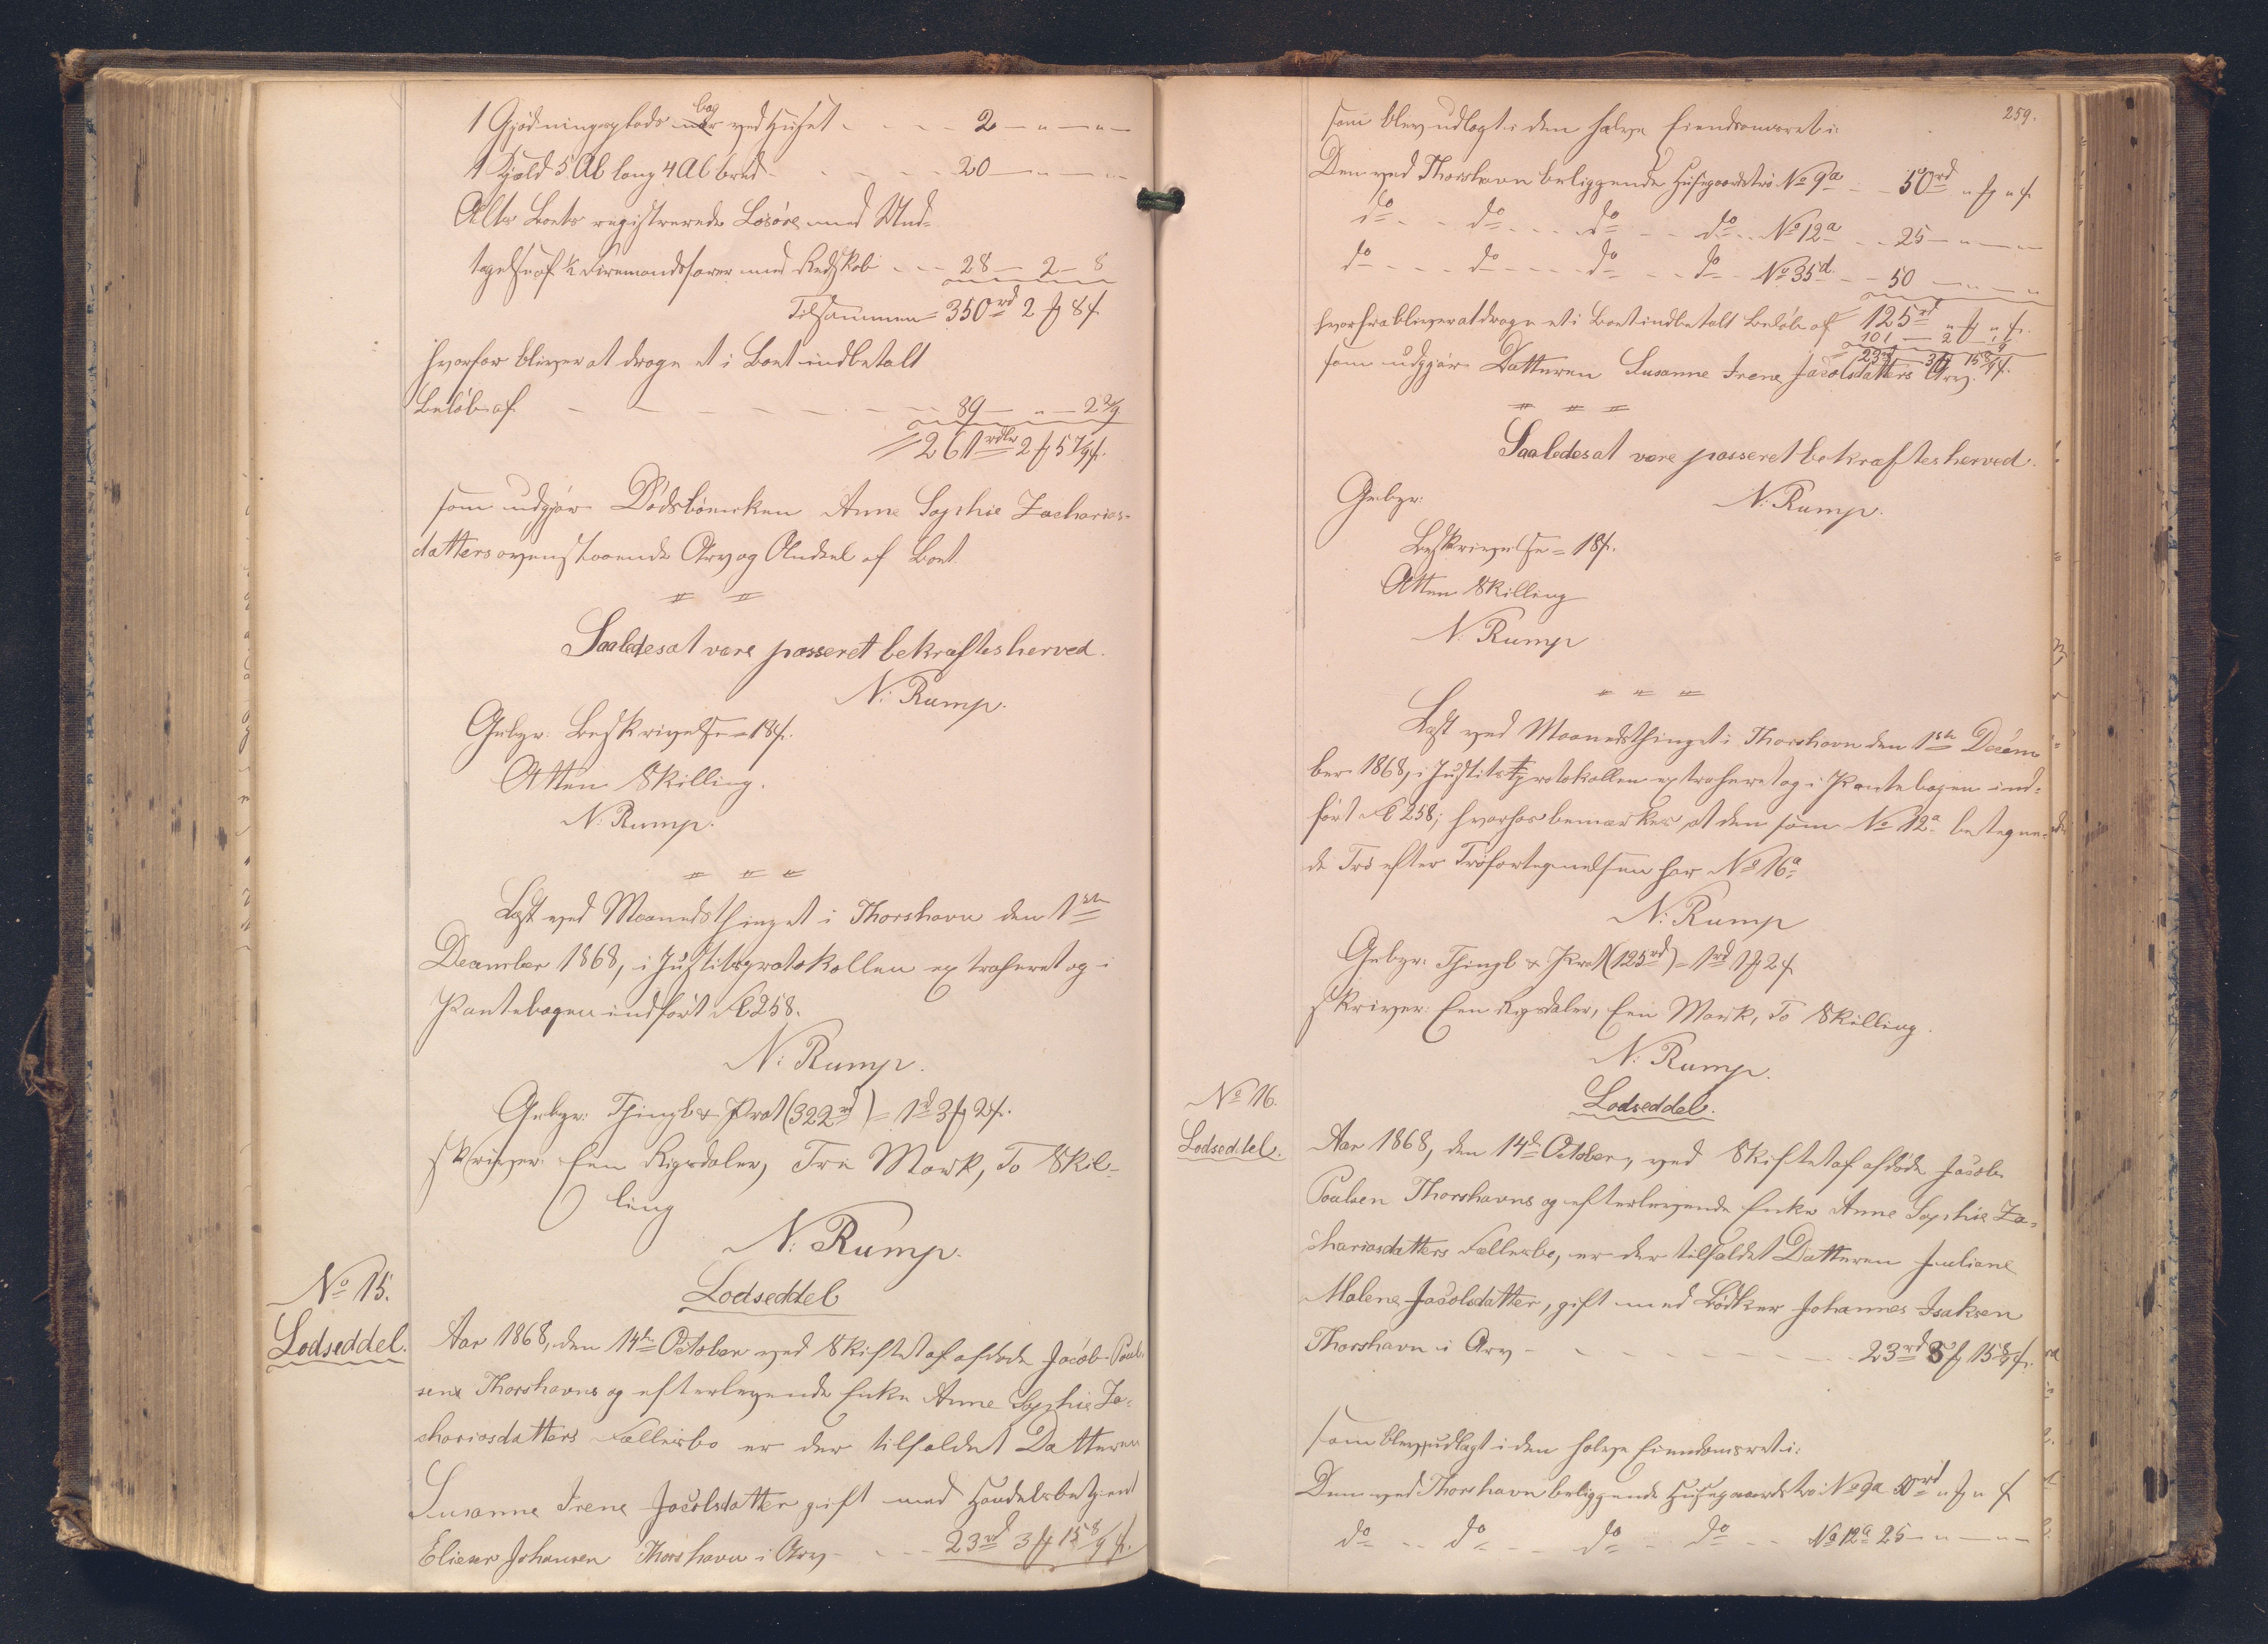 1 Gjødningsplads bag ved Huset - - - - 2 — " — " —
1 Hjald 5 Al lang 4 Al bred - - - - - 20 — " — " —
Alts Boets registrerede Løsøre med Und-
tagelse af ½ Firemandsfarer med Redskab - - - 28 — 2 — 8
Tilsammen = 350 rd 2 ꝟ 8 ß.
hvorfor bliver at drage et i Boet indbetalt
Beløb af - - - - - - - - 89 — " — 2 2/9
= 261 rdlr 2 ꝟ 5 7/9 ß.
som udgjør Dødsboenken Anne Sophie Zacharias-
datters ovenstaaende Arv og Andeel af Boet.
= =
Saaledes at være passeret bekræftes herved.
N: Rump.
Gebyr: Beskrivelse = 18 ß.
Atten Skilling.
N: Rump.
= = =
Læst ved Maanedsthinget i Thorshavn den 1ste
December 1868, i Justitsprotokollen extraheret og i
Pantebogen indført Fol 258.
N: Rump.
Gebyr: Thingl & Prot (322 rd) = 1 rd 3 ꝟ 2 ß.
skriver: Een Rigsdaler, Tre Mark, To Skil-
ling
N: Rump.
No 15.
Lodseddel.
Lodseddel
Aar 1868, den 14de October ved Skiftet af afdøde Jacob Poul-
sens Thorshavns og efterlevende Enke Anne Sophie Za-
chariasdatters Fællesbo er der tilfaldet Datteren
Susanne Irene Jacobsdatter gift med Handelsbetjent
Elieser Johansen Thorshavn i Arv - - - - 23 rd 3 ꝟ 15 8/9 ß.
259.
som blev udlagt i den halve Eiendomsret i:
Den ved Thorshavn beliggende Husegaardstrø No 9a - - 50 rd " ꝟ " ß
do - - do - - - do - - do - - No 12a - - 25 — " — " —
do - - - do - - - - do - - do - No 35d - - 50 — " — "
hvorfra bliver at drage et i Boet indbetalt Beløb af = 125 rd " ꝟ " ß.
101 — 2 — 1/9
= 23 rd 3 ꝟ 15 8/9 ß.
som udgjør Datteren Susanne Irene Jacobsdatters Arv.
= = =
Saaledes at være passeret bekræftes herved.
N: Rump.
Gebyr:
Beskrivelse = 18 ß.
Atten Skilling
N: Rump
= = =
Læst ved Maanedsthinget i Thorshavn den 1ste Decem
ber 1868, i Justitsprotokollen extraheret og i Pantebogen ind-
ført Fol 258; hvorhos bemærkes at den som No 12a betegne-
de Trø efter Trøfortegnelsen har No 16a
N: Rump
Gebyr: Thingl & Prot (125 rd) = 1 rd 1 ꝟ 2 ß
skriver: Een Rigsdaler, Een Mark, To Skilling.
N: Rump.
No 16.
Lodseddel.
Lodseddel.
Aar 1868, den 14de October, ved Skiftet af afdøde Jacob
Poulsen Thorshavns og efterlevende Enke Anne Sophie Za-
chariasdatters Fællesbo, er der tilfaldet Datteren Juliane
Malene Jacobsdatter, gift med Bødker Johannes Isaksen
Thorshavn i Arv - - - - - - - - 23 rd 3 ꝟ 15 8/9 ß.
som blev udlagt i den halve Eiendomsret i:
Den ved Thorshavn beliggende Husegaardstrø No 9a 50 rd " ꝟ " ß
do - - do - - do - do - - No 12a 25 — " — " —